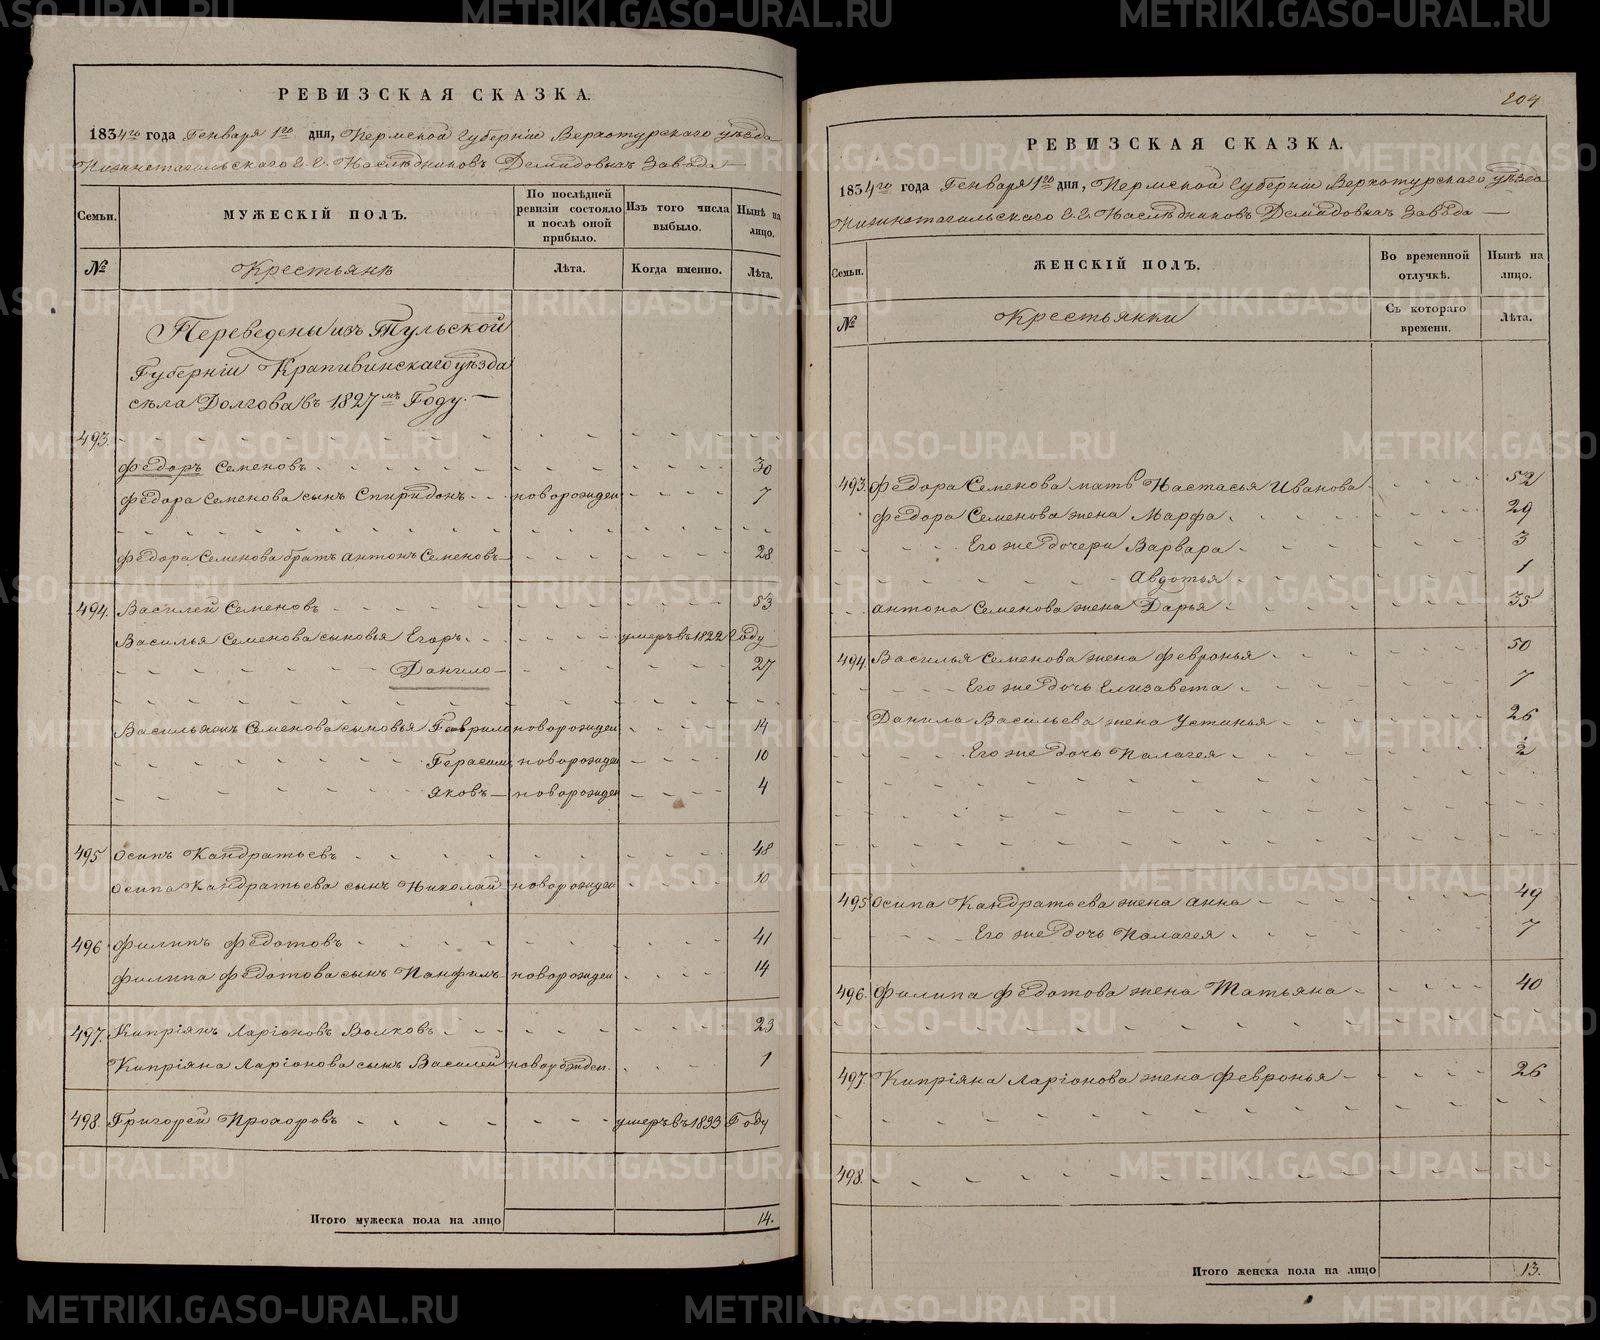 РЕВИЗСКАЯ СКАЗКА.
1834го года Генваря 1го дня, Пермской Губернiи Верхотурскаго уѣзда
Нижнетагильскаго Г. Г. Наслѣдниковъ Демидовыхъ Завода
Семьи.
МУЖЕСКIЙ ПОЛЪ.
По послѣдней ревизiи состояло и послѣ оной прибыло.
Изъ того числа выбыло.
Нынѣ на лицо.
№
Крестьянѣ
Лѣта.
Когда именно.
Лѣта.
Переведены изъ Тульской
Губернiи Крапивинскаго уѣзда
сѣла Долгова въ 1827мъ Году.
493.
Федоръ Семеновъ 30
Федора Семенова сынъ Спиридонъ новорожден 7
Федора Семенова братъ Антонъ Семеновъ 28
494. Василей Семеновъ 53
Василья Семенова сыновья Егоръ умеръ въ 1822 Году
Данило 27
Васильяжъ Семенова сыновья Гаврило новорожден 14
Герасимъ новорожден 10
Яковъ новорожден 4
495 Осипъ Кандратьевъ 48
Осипа Кандратьева сынъ Николай новорожден 10
496 Филипъ Федотовъ 41
Филипа Федотова сынъ Панфилъ новорожден 14
497. Кипрiянъ Ларiоновъ Волковъ 23
Кипрiяна Ларiонова сынъ Василей новорожден. 1
498. Григорей Прохоровъ умеръ въ 1833 Году
Итого мужеска пола на лицо 14.
204
РЕВИЗСКАЯ СКАЗКА.
1834го года Генваря 1го дня, Пермской Губернiи Верхотурскаго уѣзда
Нижнетагильскаго Г. Г. Наслѣдниковъ Демидовыхъ Завѣда
Семьи.
ЖЕНСКIЙ ПОЛЪ.
Во временной отлучкѣ.
Нынѣ на лицо.
№
Крестьянки
Съ котораго времени.
Лѣта.
493. Федора Семенова мать Настасья Иванова 52
Федора Семенова жена Марфа 29
Его же дочери Варвара 3
Авдотья 1
Антона Семенова жена Дарья 35
494. Василья Семенова жена Февронья 50
Его же дочь Елизавета 7
Данила Васильева жена Устинья 26
Его же дочь Палагея ½
495 Осипа Кандратьева жена Анна 49
Его же дочь Палагея 7
496. Филипа Федотова жена Татьяна 40
497. Кипрiяна Ларiонова жена Февронья 26
498.
Итого женска пола на лицо 13.
METRIKI.GASO-URAL.RU